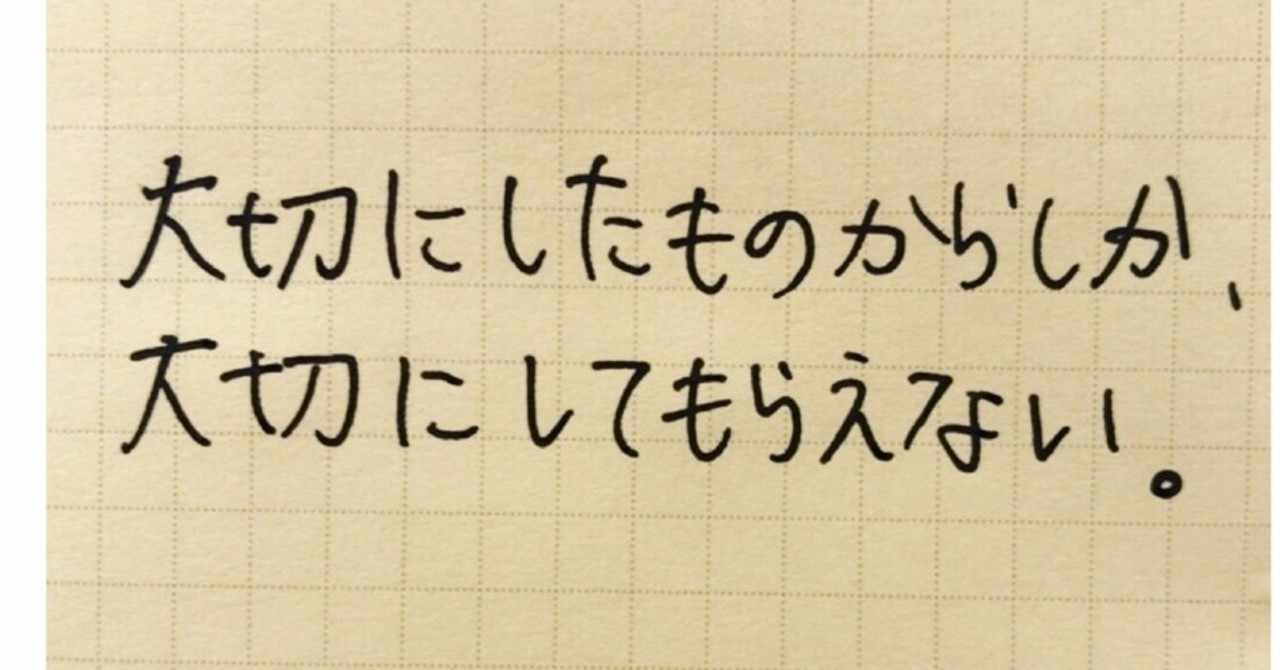 大切にしたものからしか、
大切にしてもらえない。